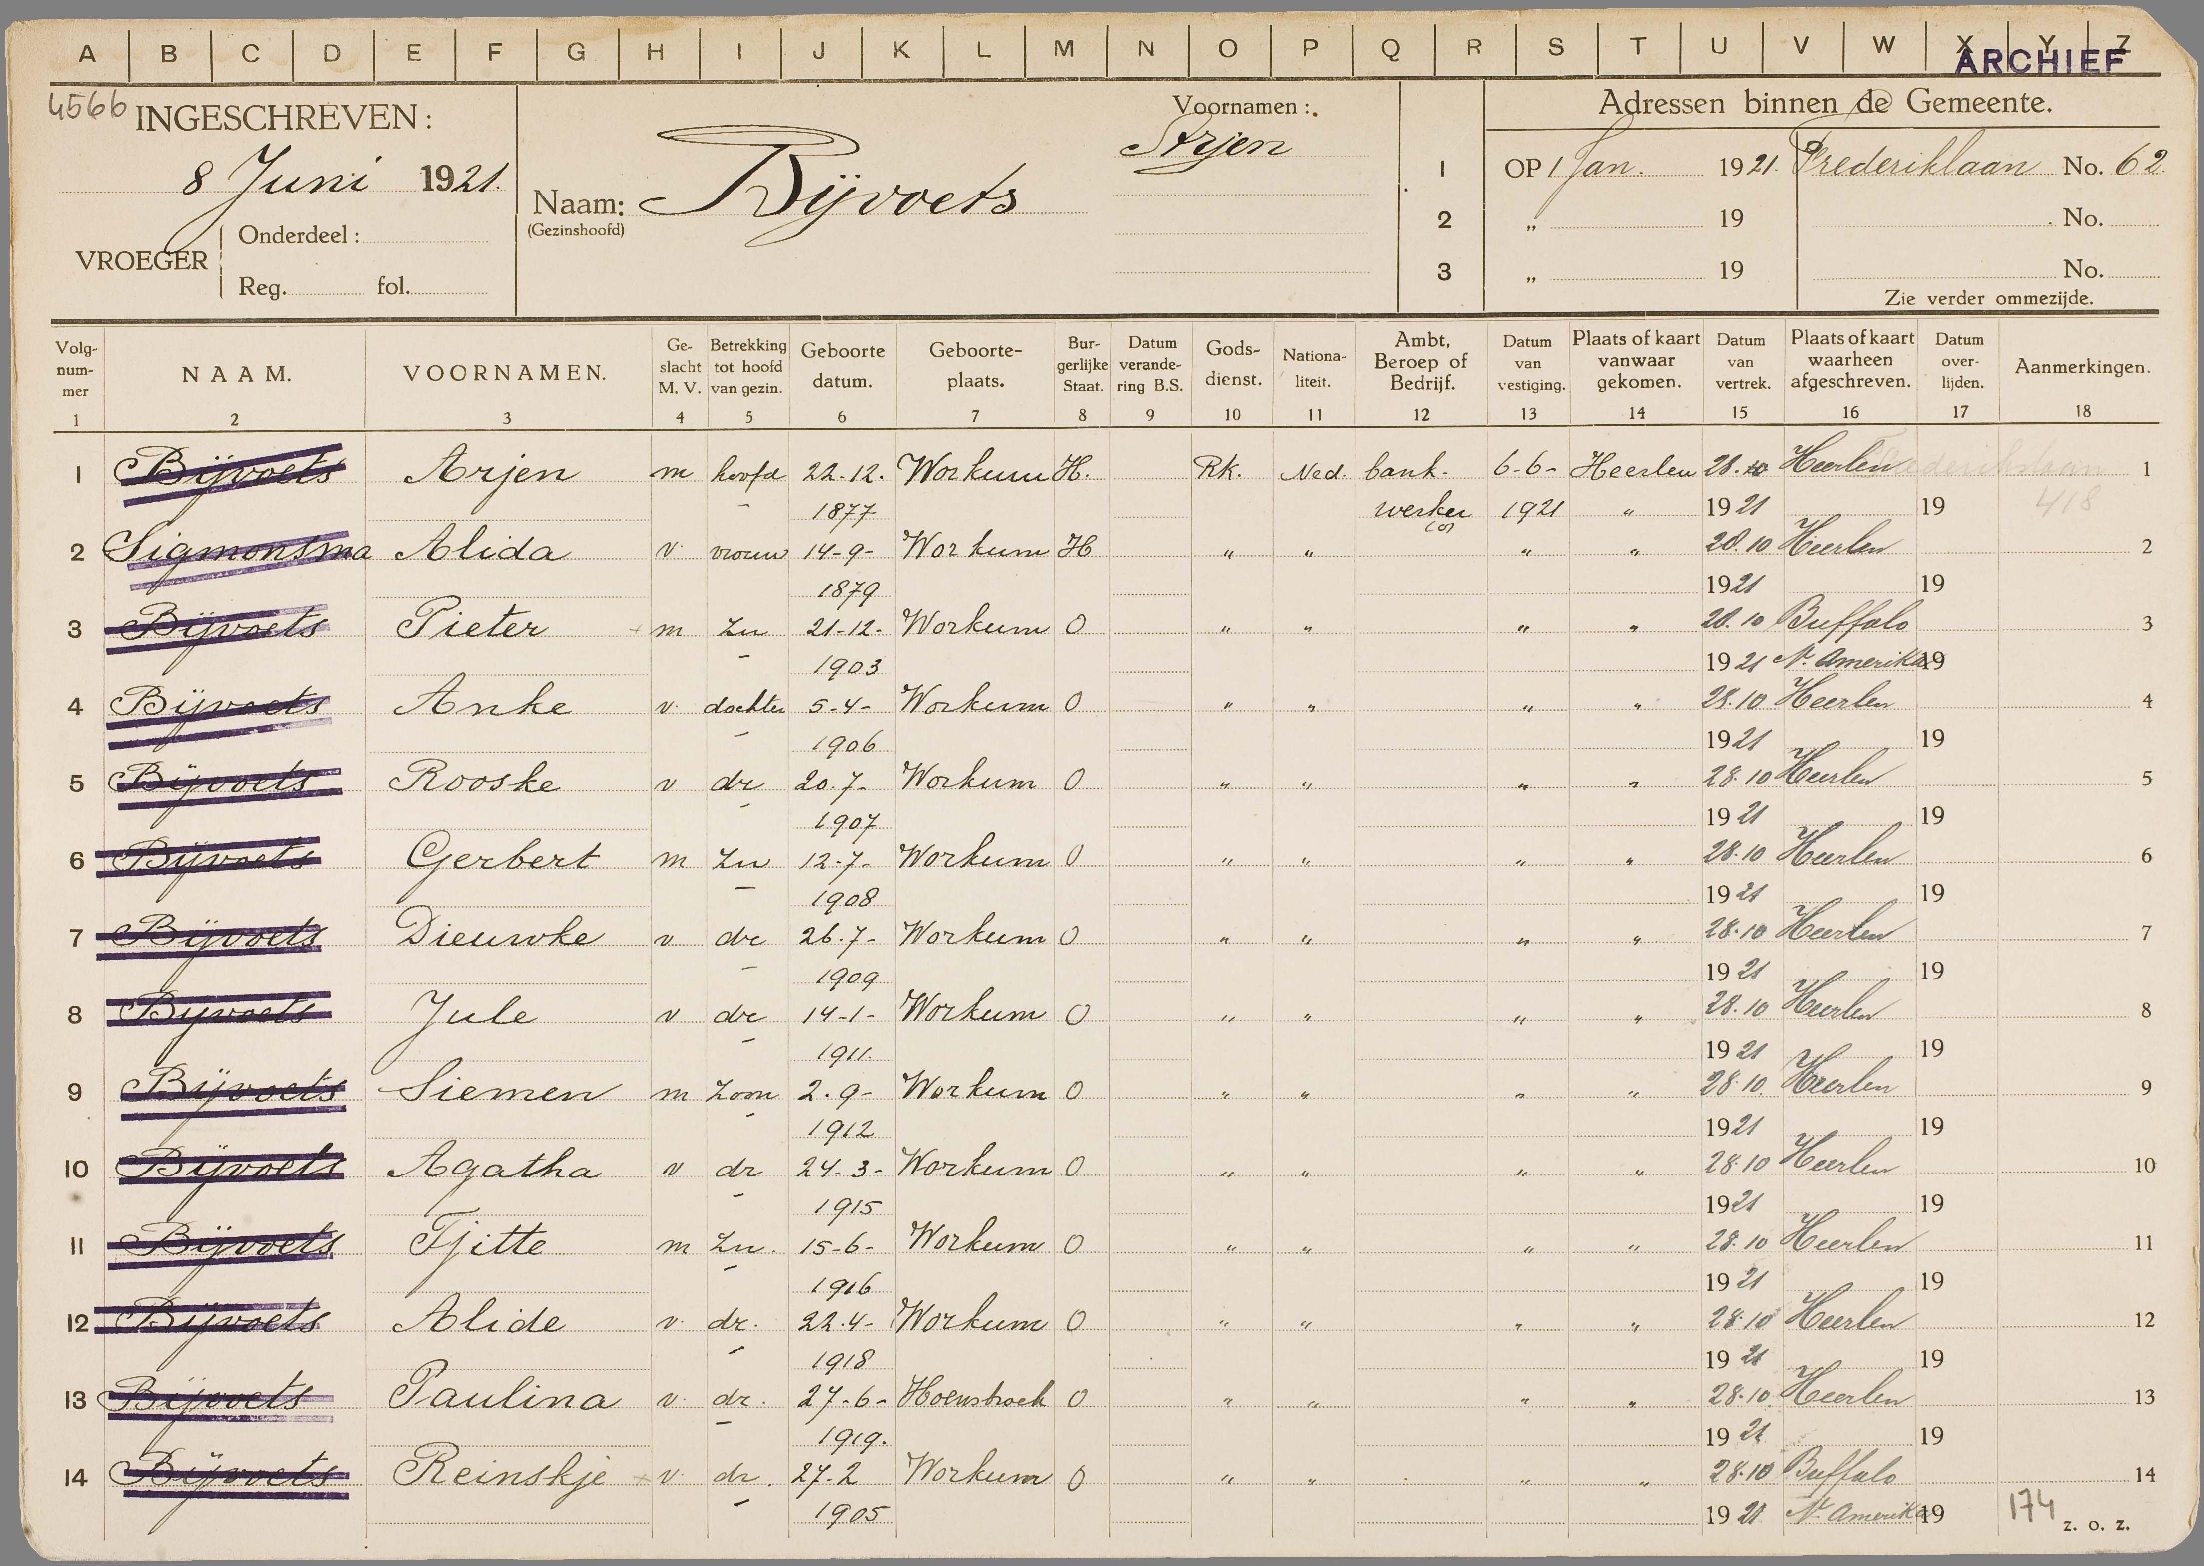 A B C D E F G H I J K L M N O P Q R S T U V W X Y Z
ARCHIEF
4566 INGESCHREVEN:
8 Juni 1921.
VROEGER Onderdeel:
Reg. fol.
Naam: Bijvoets
(Gezinshoofd)
Voornamen:
Arjen
Adressen binnen de Gemeente.
1 OP 1 Jan. 1921. Frederiklaan No. 62
2 „ 19 No.
3 „ 19 No.
Zie verder ommezijde.
Volg-nummer NAAM. VOORNAMEN. Geslacht M. V. Betrekking tot hoofd van gezin. Geboorte datum. Geboorte-plaats. Bur-gerlijke Staat. Datum verande-ring B.S. Gods-dienst. Nationa-liteit. Ambt, Beroep of Bedrijf. Datum van vestiging. Plaats of kaart vanwaar gekomen. Datum van vertrek. Plaats of kaart waarheen afgeschreven. Datum over-lijden. Aanmerkingen.
1 2 3 4 5 6 7 8 9 10 11 12 13 14 15 16 17 18
1 Bijvoets Arjen m hoofd 22-12- Workum H. RK. Ned. bank- 6-6- Heerlen 28.10 Heerlen 1
1877 werker 1921 „ 1921 19 418
2 Sigmonsma Alida v. vrouw 14-9- Workum H „ „ „ „ 28.10 Heerlen 2
1879 1921 19
3 Bijvoets Pieter m Zn 21-12- Workum O „ „ „ „ 28.10 Buffalo 3
1903 1921 N. Amerika 19
4 Bijvoets Anke v. dochter 5-4- Workum O „ „ „ „ 28.10 Heerlen 4
1906 1921 19
5 Bijvoets Rooske v dr 20.7- Workum O „ „ „ „ 28.10 Heerlen 5
1907 1921 19
6 Bijvoets Gerbert m Zn 12-7- Workum O „ „ „ „ 28.10 Heerlen 6
1908 1921 19
7 Bijvoets Dieuwke v dr 26.7- Workum O „ „ „ „ 28.10 Heerlen 7
1909 1921 19
8 Bijvoets Jule v dr 14-1- Workum O „ „ „ „ 28.10 Heerlen 8
1911. 1921 19
9 Bijvoets Siemen m Zoon 2.9- Workum O „ „ „ „ 28.10. Heerlen 9
1912 1921 19
10 Bijvoets Agatha v dr 24-3- Workum O „ „ „ „ 28.10 Heerlen 10
1915 1921 19
11 Bijvoets Tjitte m Zn. 15-6- Workum O „ „ „ „ 28.10 Heerlen 11
1916 1921 19
12 Bijvoets Alide v. dr. 22.4- Workum O „ „ „ „ 28.10 Heerlen 12
1918 1921 19
13 Bijvoets Paulina v. dr. 27-6- Hoensbroek O „ „ „ „ 28.10. Heerlen 13
1919. 1921 19
14 Bijvoets Reinskje v. dr. 27-2 Workum O „ „ „ „ 28.10 Buffalo 14
1905 1921 N. Amerika 19
174 z. o. z.